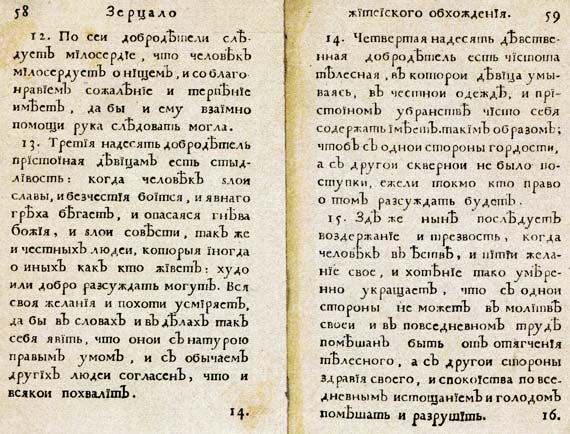 58 Зерцало
12. По сеи добродѣтели слѣ-
дуетъ мілосердіе, что человѣкъ
мілосердуетъ о ніщемъ, и со благо-
нравіемъ сожалѣніе и терпѣніе
имѣетъ, да бы и ему взаімно
помощи рука слѣдовать могла.
13. Третія надесять добродѣтель
прістоіная дѣвіцамъ есть стыд-
лівость: когда человѣкъ злои
славы, и безчестія боітся, и явнаго
грѣха бѣгаетъ, и опасаяся гнѣва
божія, и злои совѣсти, такъ же
и честныхъ людеи, которыя іногда
о иныхъ какъ кто жіветъ: худо
или добро разсуждать могутъ. Вся
своя желанія и похоти усміряетъ,
да бы въ словахъ и въ дѣлахъ такъ
себя явіть, что онои съ натурою
правымъ умомъ, и съ обычаемъ
другіхъ людеи согласенъ, что и
всякои похваліть.
14.
жітеіского обхожденія. 59
14. Четвертая надесять дѣвстве-
нная добродѣтель есть чістота
тѣлесная, въ которои дѣвіца умы-
ваясь, въ честнои одеждѣ, и прі-
стоіномъ убранствѣ чісто себя
содержать імѣетъ. такімъ образомъ;
чтобъ съ однои стороны гордости,
а съ другои сквернои не было по-
ступки, ежели токмо кто право
о томъ разсуждать будетъ.
15. Здѣ же нынѣ послѣдуетъ
воздержаніе и трезвость, когда
человѣкъ въ ѣствѣ, и пітіи жела-
ніе свое, и хотѣніе тако умѣре-
нно укращаетъ, что съ однои
стороны не можетъ въ молітвѣ
своеи и въ повседневномъ трудѣ
помѣшанъ быть отъ отягченія
тѣлесного, а съ другои стороны
здравія своего, и спокоіства по все-
дневнымъ истощаніемъ и голодомъ
помѣшать и разрушіть. 16.